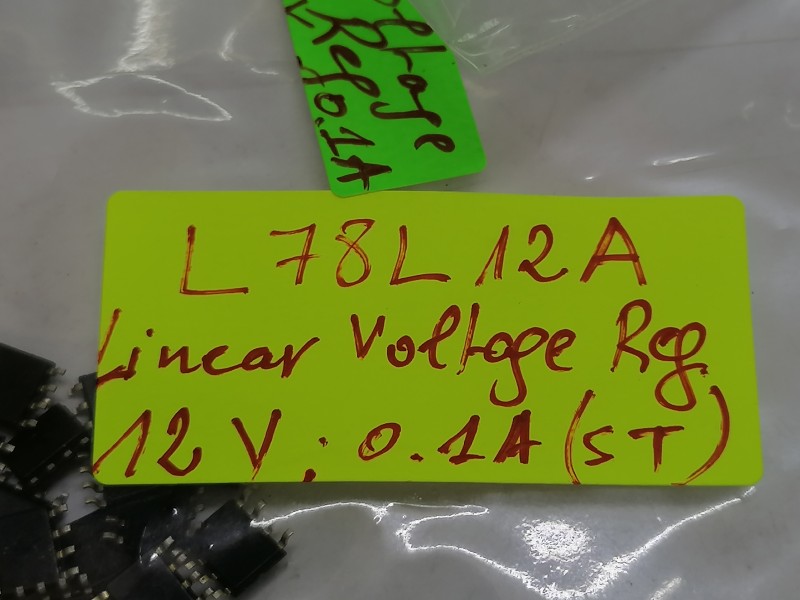 Reg
0.1A
L78L12A
Linear Voltage Reg
12V; 0.1A (ST)